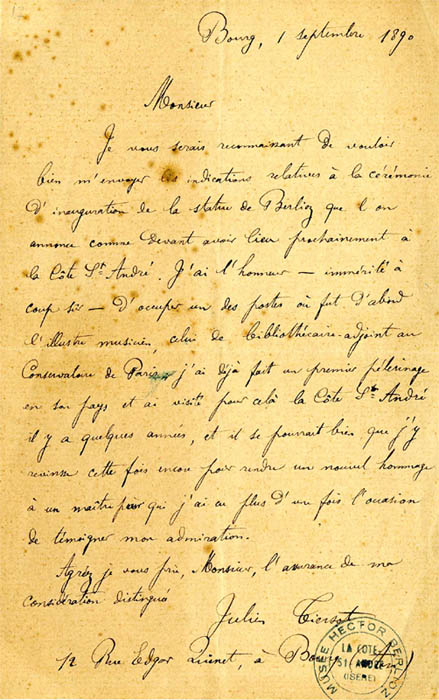 Bourg, 1 septembre 1890
Monsieur
Je vous serais reconnaissant de vouloir
bien m'envoyer les indications relatives à la cérémonie
d'inauguration de la statue de Berlioz que l'on
annonce comme devant avoir lieu prochainement à
la Côte St. André. J'ai l'honneur — immérité à
coup sûr — d'occuper un des postes où fut d'abord
l'illustre musicien, celui de bibliothécaire-adjoint au
Conservatoire de Paris, j'ai déjà fait un premier pélerinage
en son pays et ai visité pour celà la Côte St. André
il y a quelques années, et il se pourrait bien que j'y
revinsse cette fois encore pour rendre un nouvel hommage
à un maître pour qui j'ai eu plus d'une fois l'occasion
de témoigner mon admiration.
Agréez je vous prie, Monsieur, l'assurance de ma
considération distinguée
Julien Tiersot
12 Rue Edgar Quinet, à Bourg
MUSEE HECTOR BERLIOZ
LA COTE
ST ANDRE
(ISERE)